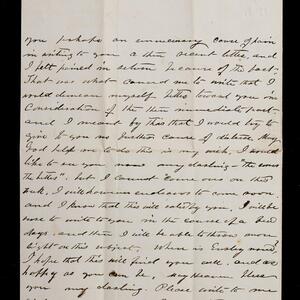 you perhaps an unnecessary cause of pain
in writing to you a then recent letter, and
I felt pained in return because of the fact.
That was what caused me to write that I
would demean myself better toward you in
Consideration of the then immediate past
and I meant by this that I would try to
give to you no further cause of distress. May
God help me to do this is my wish. I would
like to see you now my darling "the sooner
the better", but I cannot come on this
week. I will however endeavor to come soon.
and I know that this will satisfy you. I will be
sure to write to you in the course of a few
days. and then I will be able to throw more
light on this subject. When is
I hope that this will find you well, and as
happy as you can be. May Heaven bless
you my darling. Please write to me